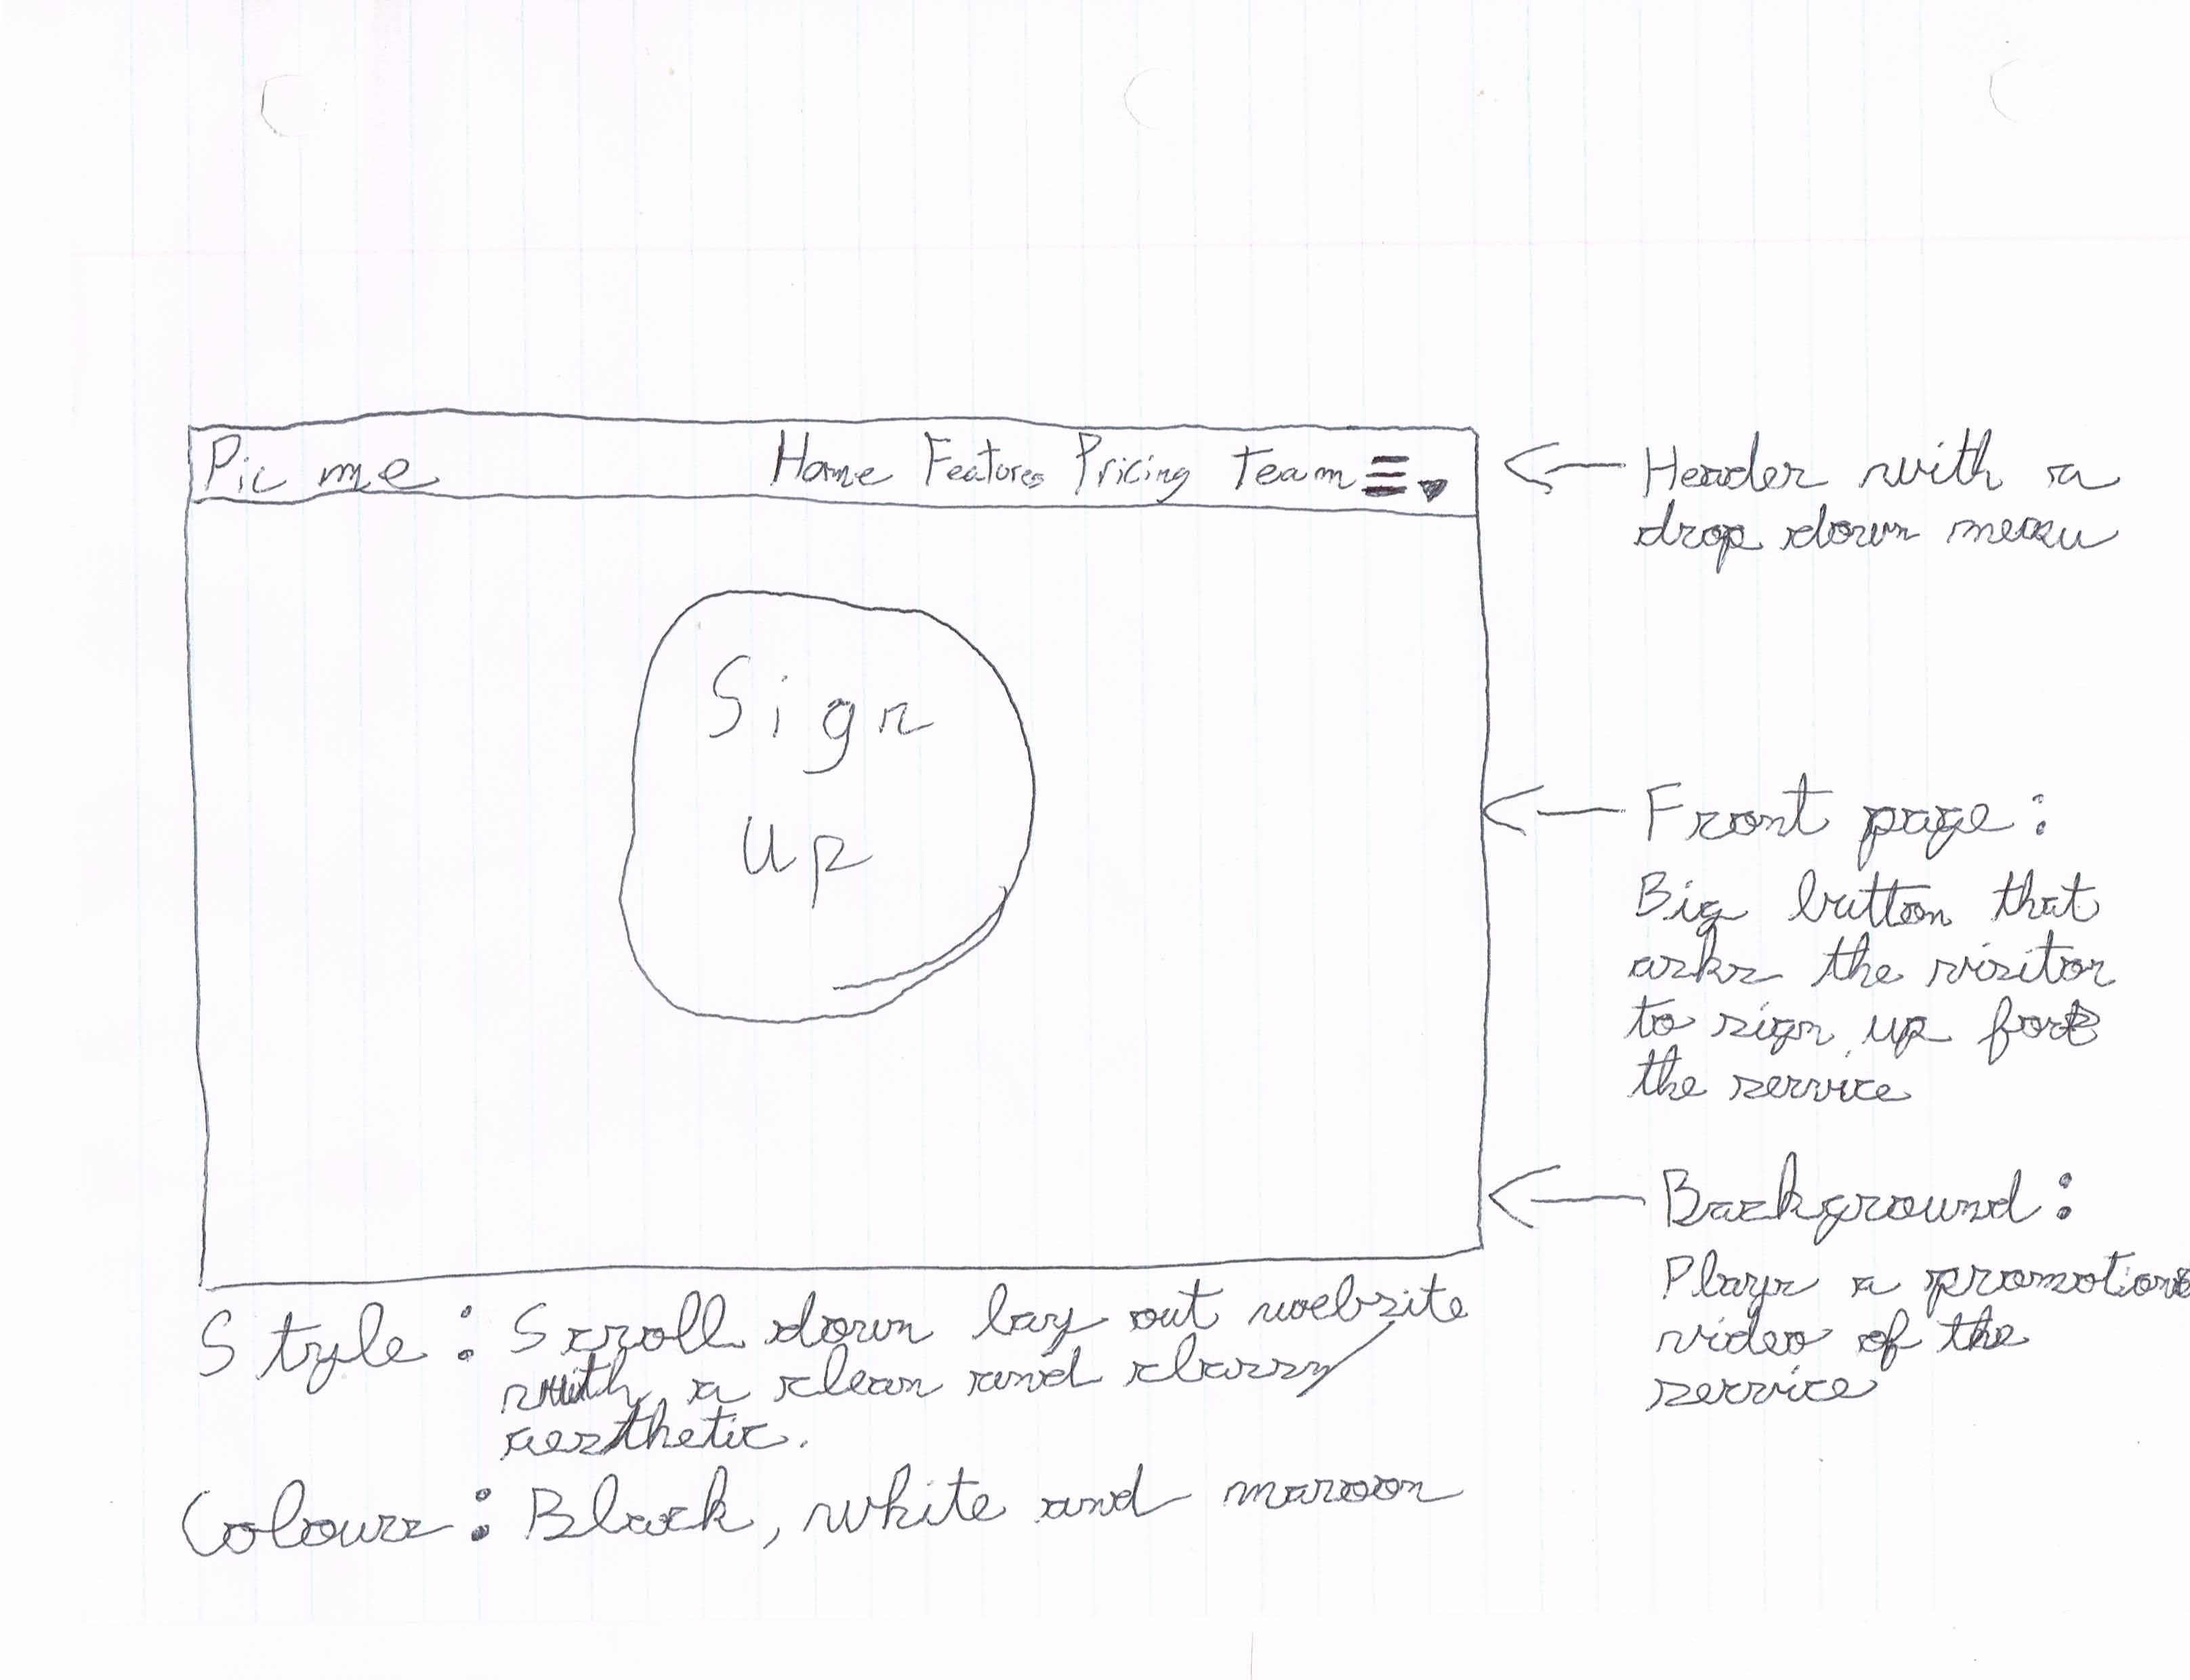 Pic me
Home Features Pricing Team
Header with a
drop down menu
Sign
up
Front page:
Big button that
asks the visitor
to sign up for
the service
Background:
Plays a promotions
video of the
service
Style: Scroll down lay out website
with a clean and classy
aesthetic.
Colours: Black, white and maroon